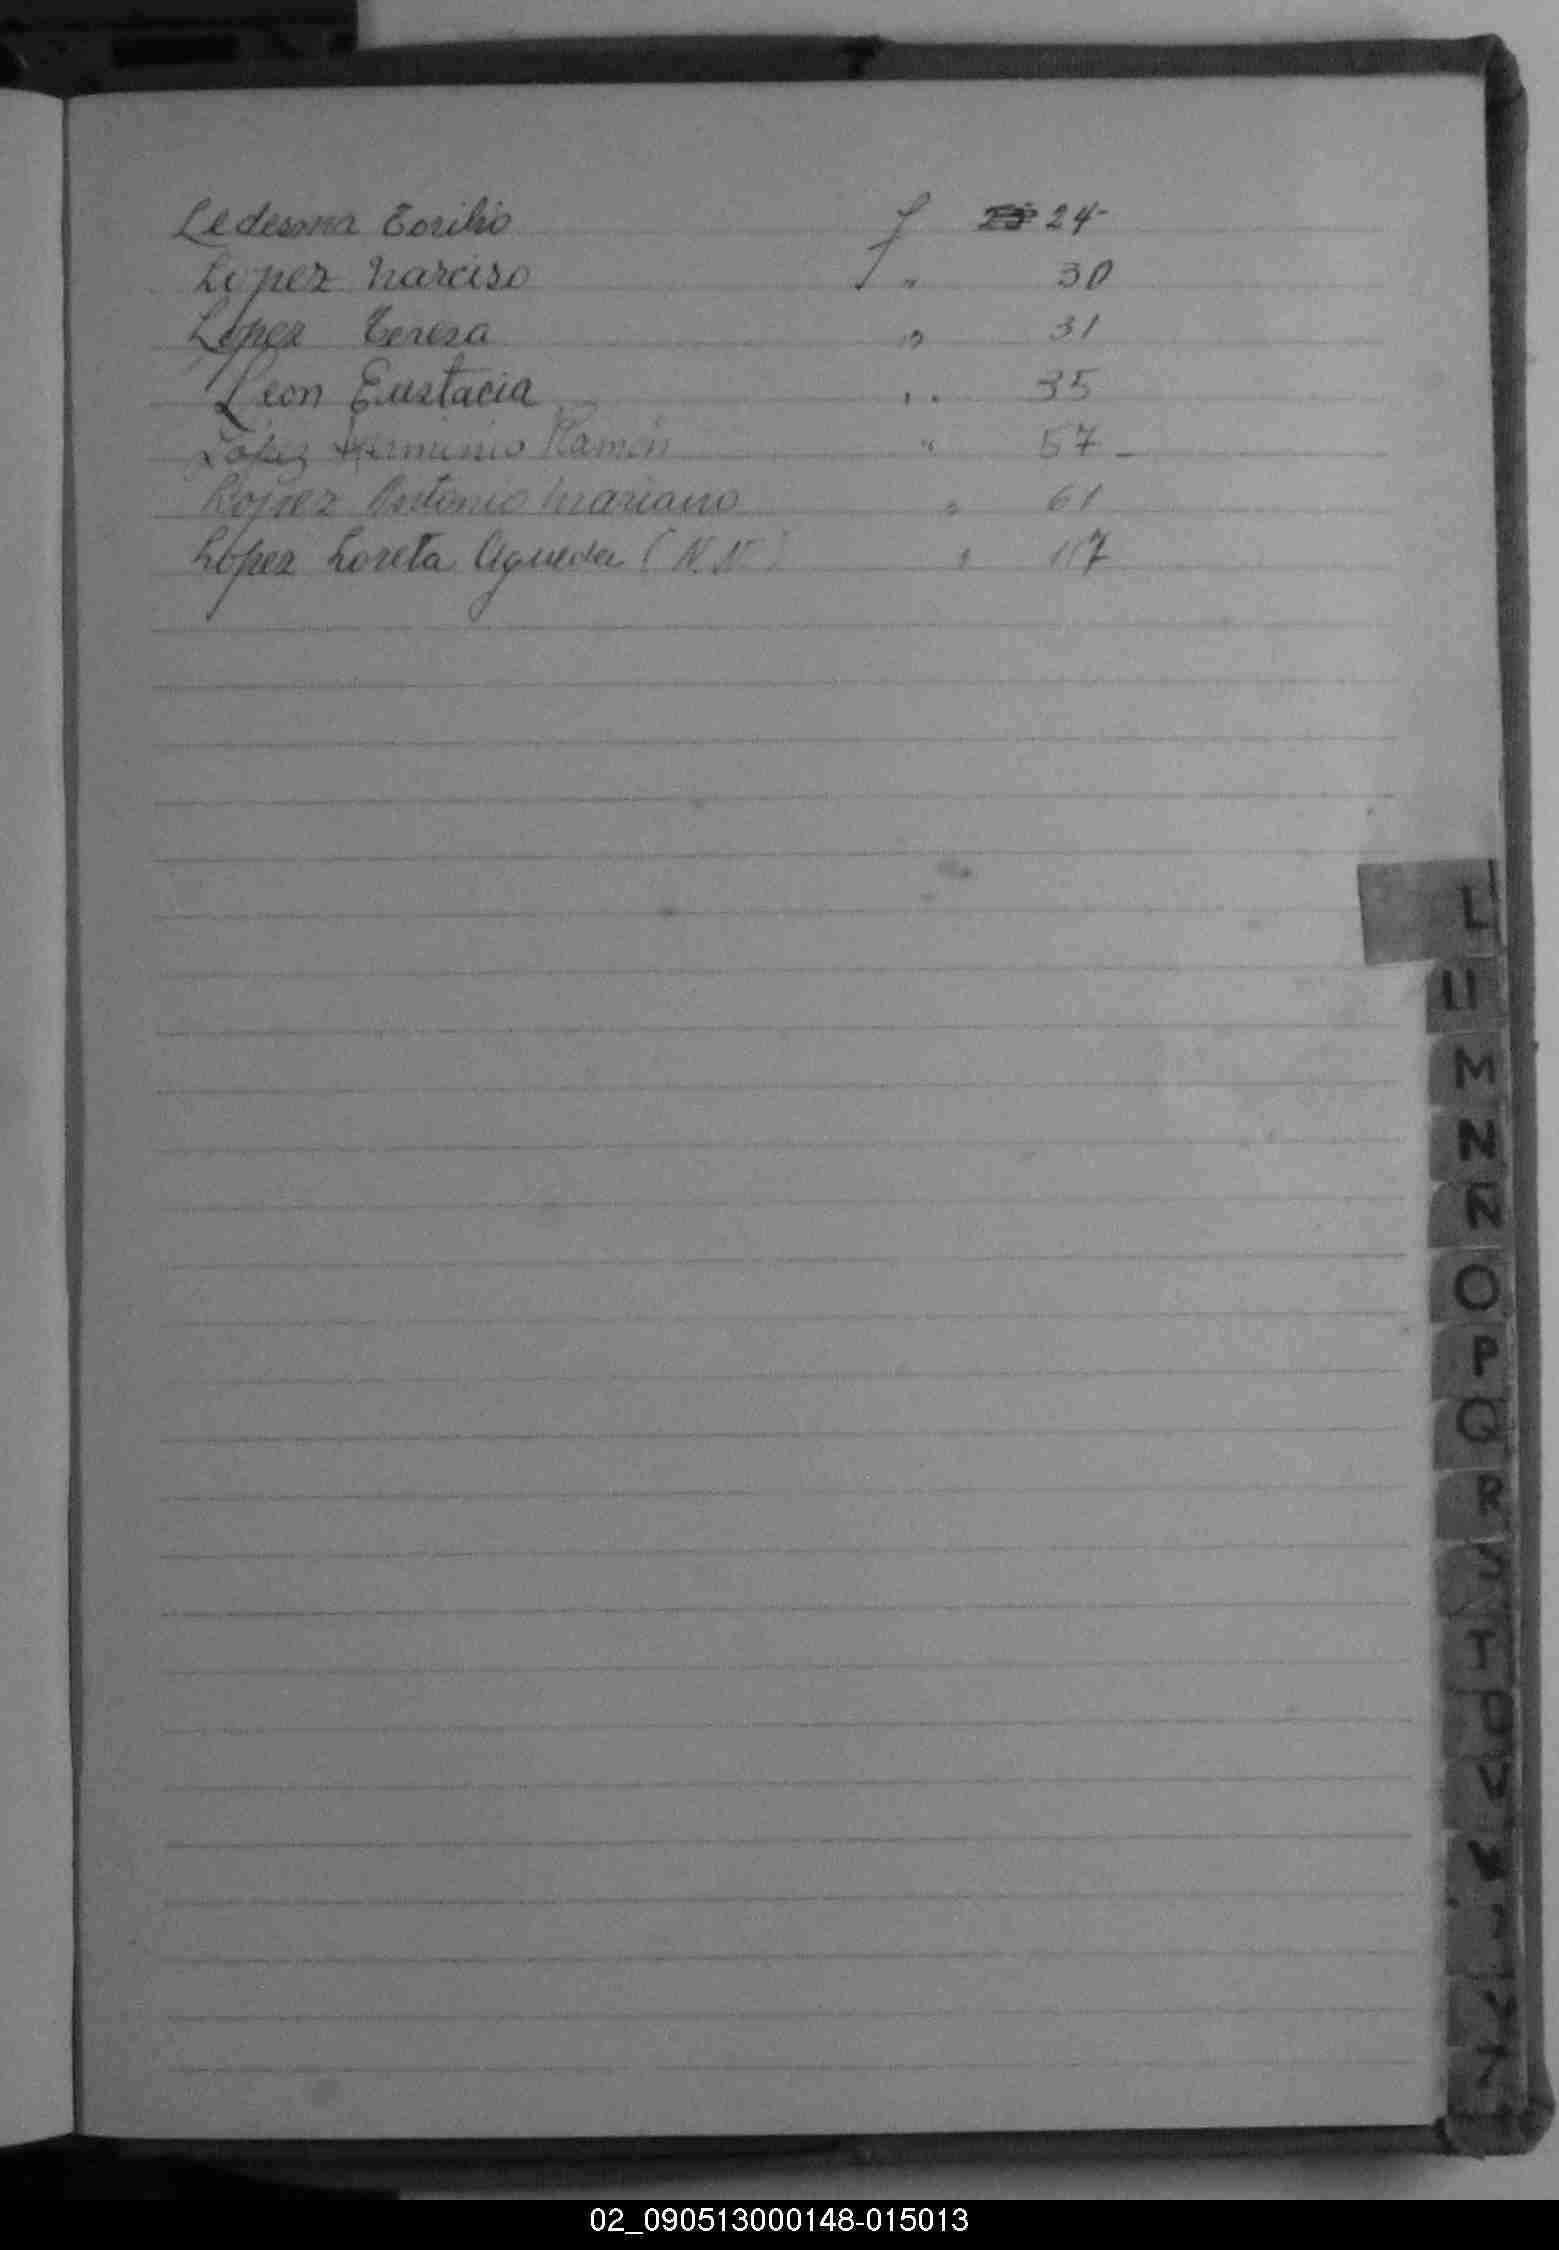 Ledesma Toribio f 24-
Lopez Narciso " 30
Lopez Teresa " 31
Leon Eustacia " 35
López Herminio Ramón " 57-
Lopez Antonio Mariano " 61
López Loreta Agueda (N.N) " 117
L
Ll
M
N
Ñ
O
P
Q
R
S
T
U
V
Y
Z
02_090513000148-015013